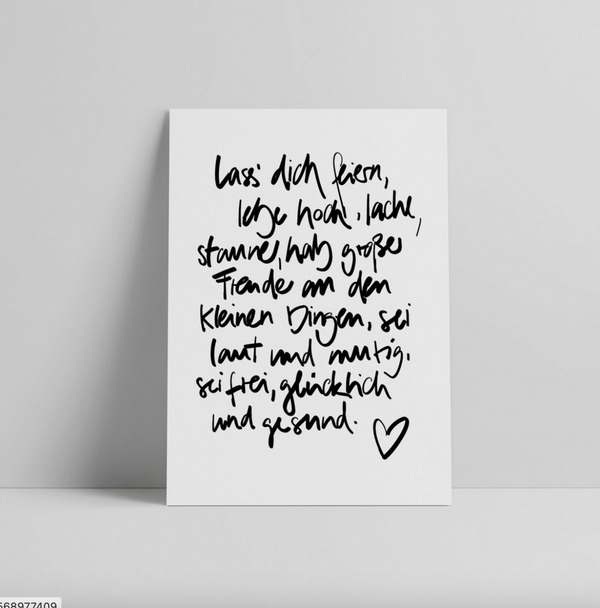 Lass' dich feiern,
lebe hoch, lache,
staune, hab große
Freude an den
kleinen Dingen, sei
laut und mutig.
sei frei, glücklich
und gesund.
568977409